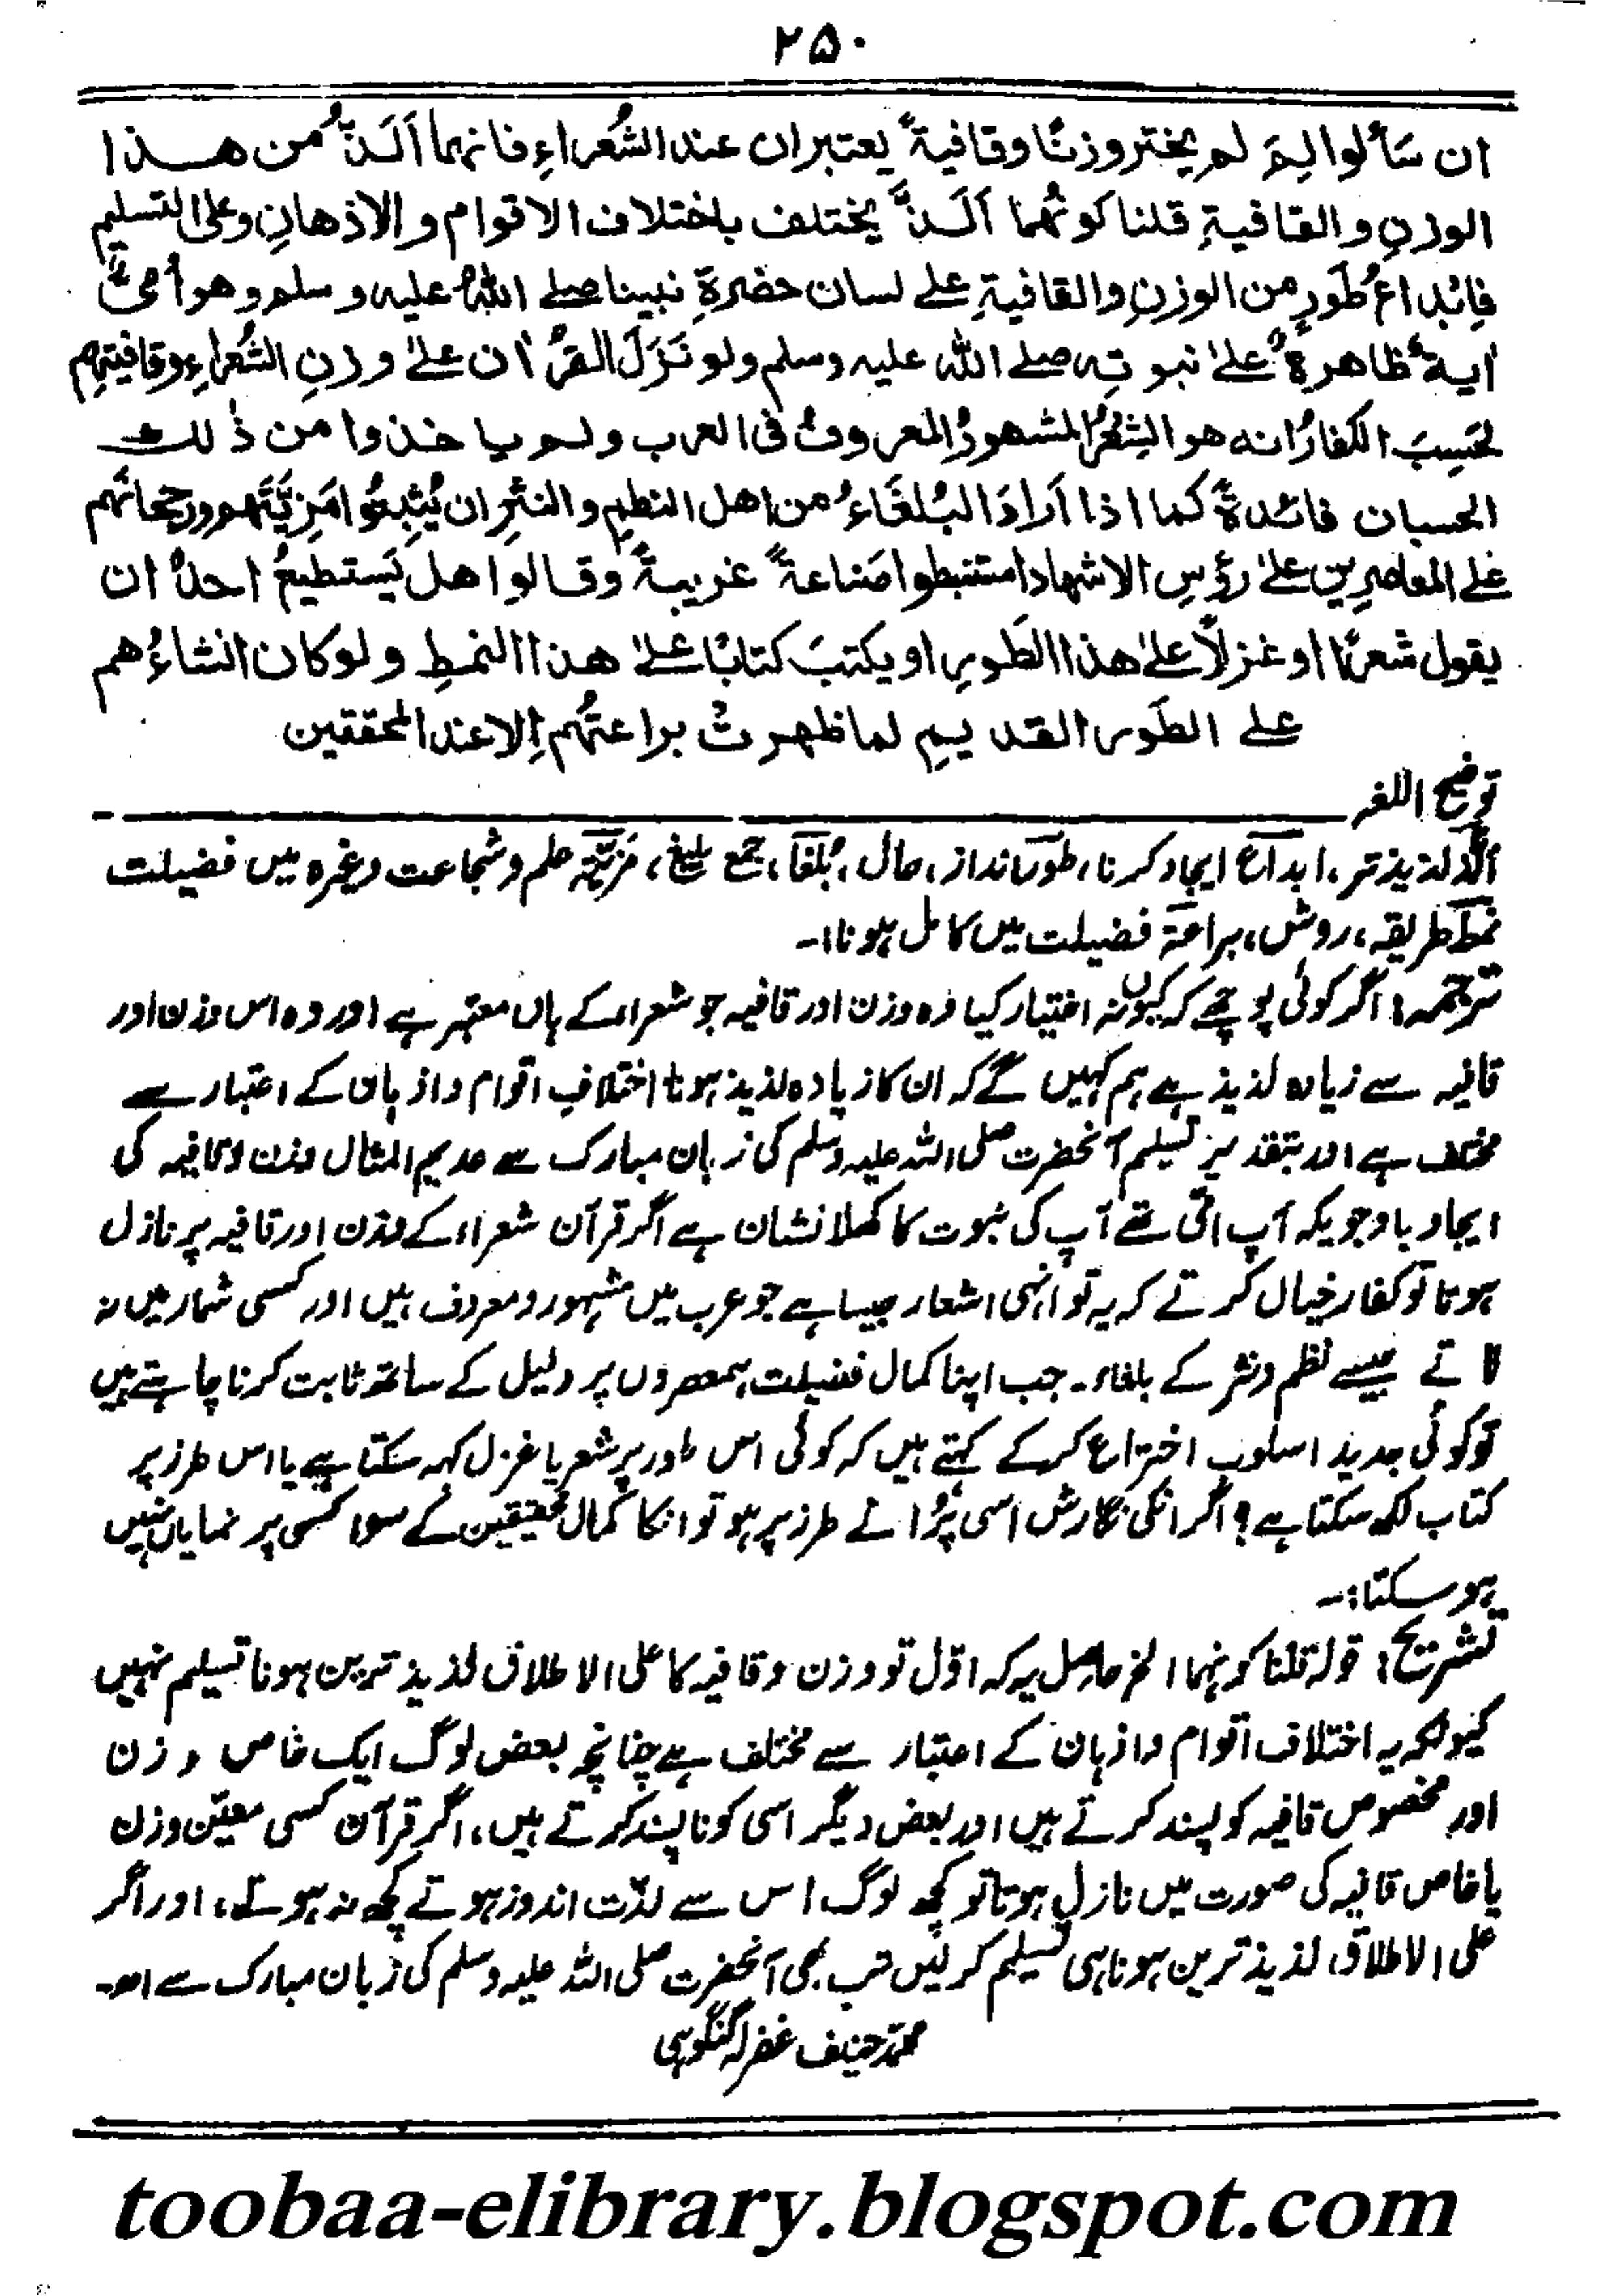 ۲۵۰
ان سَأَلوا لِمَ لم يختر وزنًا وقافيةً يعتبران عند الشُعَراءِ فانهما اَلَذُّ من هذا
الوزنِ والقافيةِ قلنا كونُهما اَلَذَّ يختلف باختلاف الاقوام والاذهانِ وعلى التسليم
فابْداعُ طَورٍ من الوزنِ والقافيةِ على لسان حضرةِ نبينا صلے اللهُ عليه وسلم وهو أُمىٌّ
اٰيةٌ ظاهرةٌ علىٰ نبوتِه صلے الله عليه وسلم ولو نَزَلَ القرُاٰن علىٰ وزنِ الشُعراءِ وقافيتِهم
لحَسِبَ الكفارُ انه هو الشِعْرُ المشهورُ المعروفُ فى العرب ولم ياخذوا من ذٰلك
الحسبان فائدةً كما اذا اَرادَ البُلغَاءُ من اهل النظمِ والنثرِ ان يُثبِتُوا مَزِيَّتَهم ورجحانَهم
على المعاصرين علىٰ رؤسِ الاشهاد استنبطوا صناعةً غريبةً وقالوا هل يَستطيعُ احدٌ ان
يقول شعرًا او غزلًا علىٰ هذا الطَورِ او يكتبَ كتابًا علىٰ هذا النمطِ ولو كان انشاءُهم
على الطَورِ القديمِ لما ظهرتْ براعتُهم اِلا عند المحققين
توضیح اللغہ
اَلَذّ لذیذ تر، ابداع ایجاد کرنا، طور انداز، حال، بُلَغَا، جمع بلیغ، مَزِیَّۃ حلم و شجاعت وغیرہ میں فضیلت
نمط طریقہ، روش، براعۃ فضیلت میں کامل ہونا:۔
ترجمہ: اگر کوئی پوچھے کہ کیوں نہ اختیار کیا وہ وزن اور قافیہ جو شعراء کے ہاں معتبر ہے اور وہ اس وزن اور
قافیہ سے زیادہ لذیذ ہے ہم کہیں گے کہ ان کا زیادہ لذیذ ہونا اختلافِ اقوام و اذہان کے اعتبار سے
مختلف ہے اور بتقدیر تسلیم آنحضرت صلی اللہ علیہ وسلم کی زبان مبارک سے عدیم المثال وزن و قافیہ کی
ایجاد باوجویکہ آپ امّی تھے آپ کی نبوت کا کھلا نشان ہے اگر قرآن شعراء کے وزن اور قافیہ پر نازل
ہوتا تو کفار خیال کرتے کہ یہ تو انہی اشعار جیسا ہے جو عرب میں مشہور و معروف ہیں اور کسی شمار میں نہ
لاتے جیسے نظم و نثر کے بلغاء۔ جب اپنا کمال فضیلت ہمعصروں پر دلیل کے ساتھ ثابت کرنا چاہتے ہیں
تو کوئی جدید اسلوب اختراع کرکے کہتے ہیں کہ کوئی اس طور پر شعر یا غزل کہہ سکتا ہے یا اس طرز پر
کتاب لکھ سکتا ہے؟ اگر انکی نگارش اسی پُرانے طرز پر ہو تو انکا کمال محققین کے سوا کسی پر نمایاں نہیں
ہو سکتا:۔
تشریح: قولہ قلنا کونہما الخ حاصل یہ کہ اوّل تو وزن و قافیہ کا علی الاطلاق لذیذ ترین ہونا تسلیم نہیں
کیونکہ یہ اختلاف اقوام و اذہان کے اعتبار سے مختلف ہے چنانچہ بعض لوگ ایک خاص وزن
اور مخصوص قافیہ کو پسند کرتے ہیں اور بعض دیگر اسی کو ناپسند کرتے ہیں، اگر قرآن کسی معیّن وزن
یا خاص قافیہ کی صورت میں نازل ہوتا تو کچھ لوگ اس سے لذّت اندوز ہوتے کچھ نہ ہوتے، اور اگر
علی الاطلاق لذیذ ترین ہونا ہی تسلیم کرلیں تب بھی آنحضرت صلی اللہ علیہ وسلم کی زبان مبارک سے اھ۔
محمد حنیف غفرلہ گنگوہی
toobaa-elibrary.blogspot.com